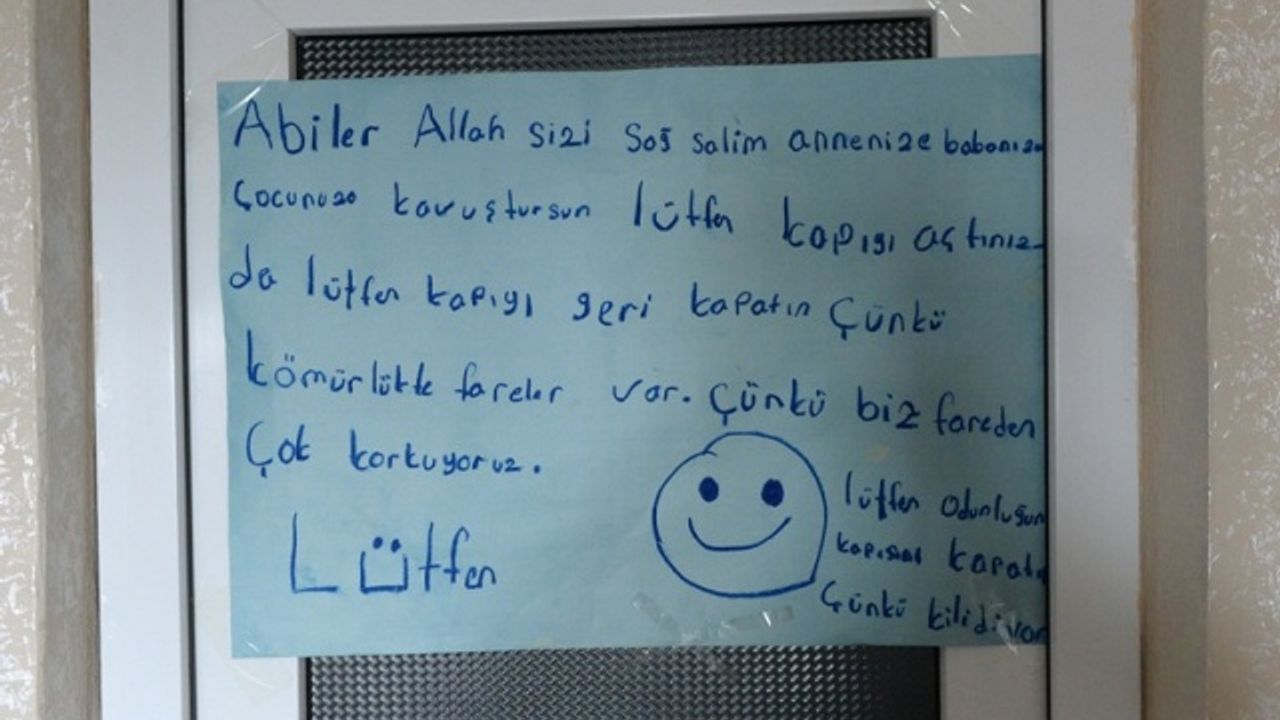 Abiler Allah sizi sağ salim annenize babanıza
çocunuza kavuştursun lütfen kapıyı açtınız
da lütfen kapıyı geri kapatın çünkü
kömürlükte fareler var. Çünkü biz fareden
çok korkuyoruz.
Lütfen
lütfen odunluğun
kapısını kapatın
çünkü kilidi var